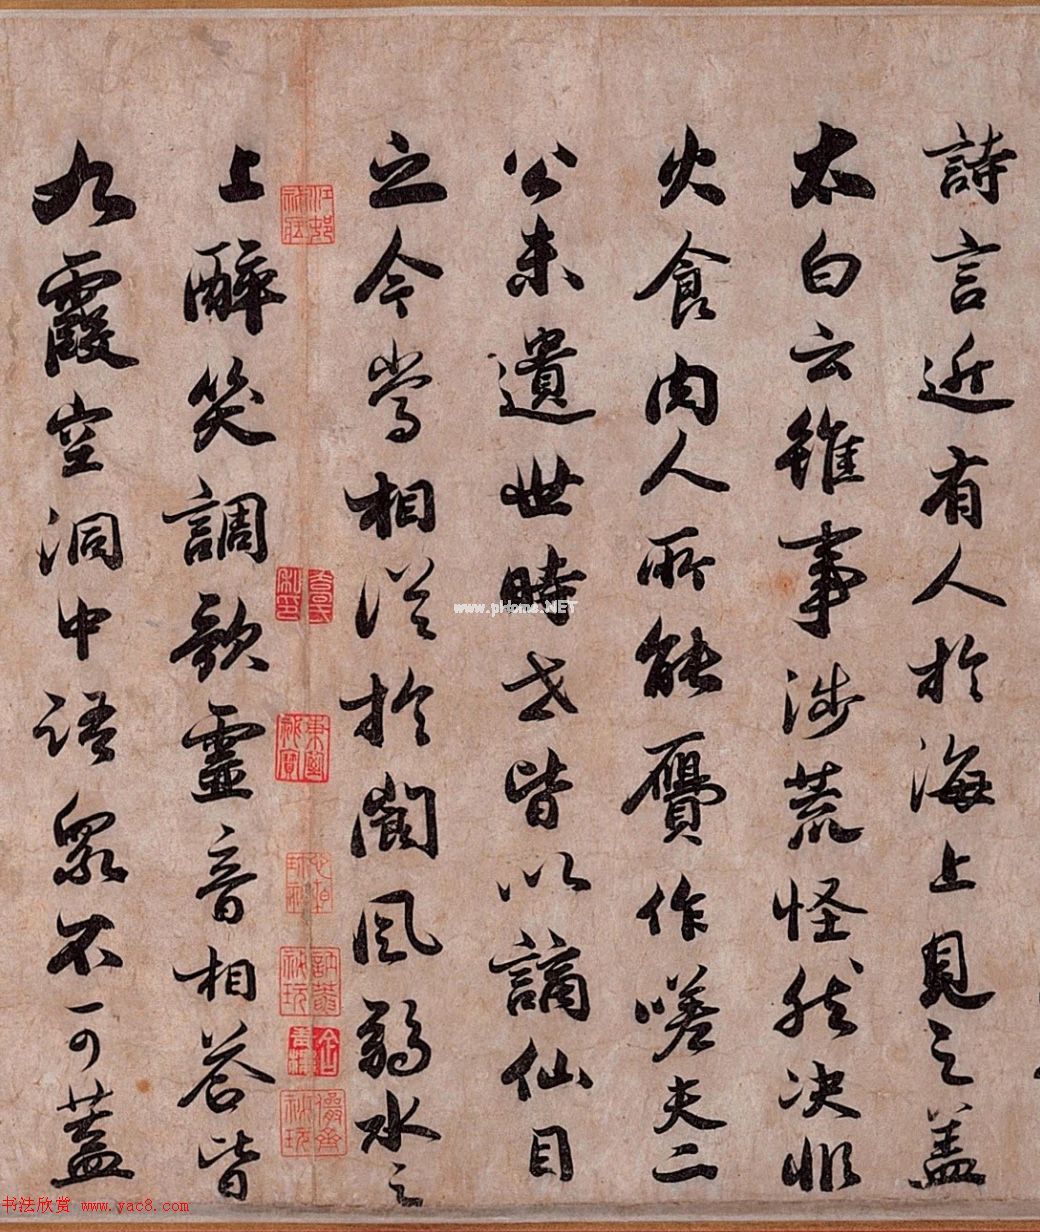 詩言近有人於海上見之盖
太白云雖事涉荒怪然决非
火食肉人所能贗作嗟夫二
公未遺世時世皆以謫仙目
之今當相從於閬風弱水之
上醉笑調歌靈音相答皆
九霞空洞中語衆不可蓋
江邨
秘藏
儼齋
秘玩
书法欣赏 www.yac8.com